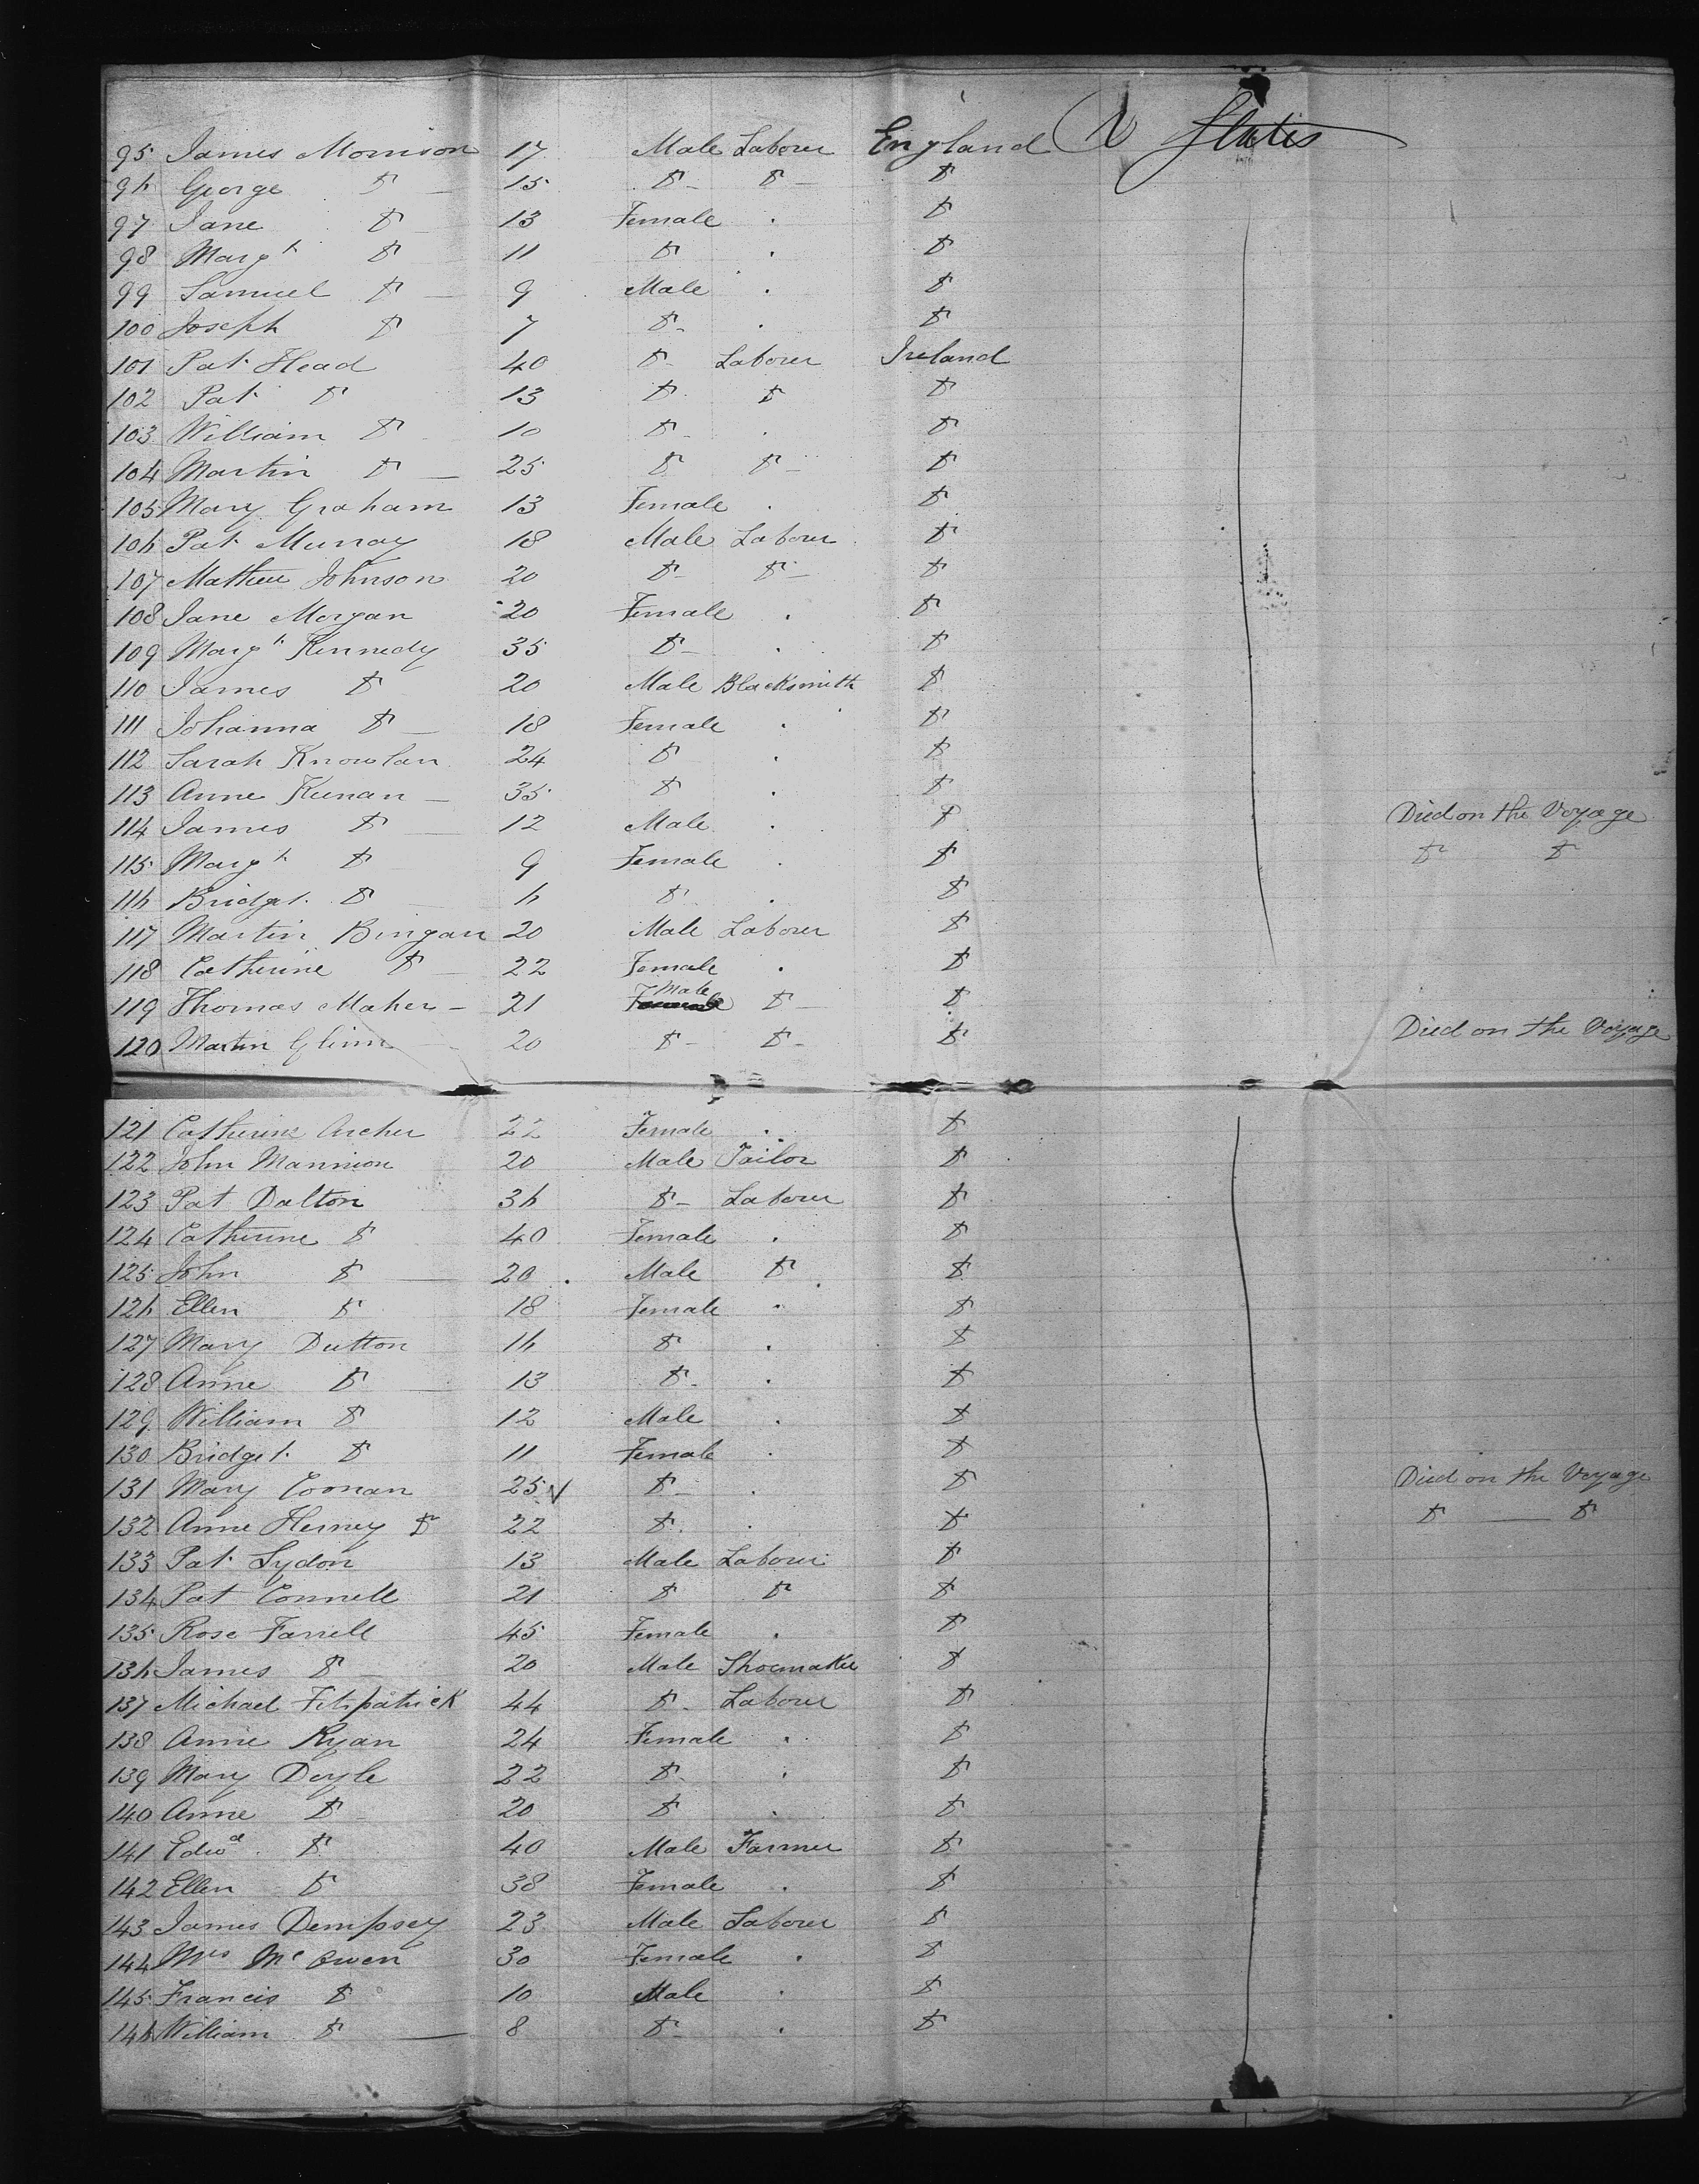 95 James Morrison 17 Male Laborer England U States
96 George Do 15 Do Do Do
97 Jane Do 13 Female Do
98 Margt Do 11 Do Do
99 Samuel Do 9 Male Do
100 Joseph Do 7 Do Do
101 Pat Head 40 Do Laborer Ireland
102 Pat Do 13 Do Do Do
103 William Do 10 Do Do
104 Martin Do 25 Do Do Do
105 Mary Graham 13 Female Do
106 Pat Murray 18 Male Laborer Do
107 Mathew Johnson 20 Do Do Do
108 Jane Morgan 20 Female Do
109 Margt Kennedy 35 Do Do
110 James Do 20 Male Blacksmith Do
111 Johanna Do 18 Female Do
112 Sarah Knowlan 24 Do Do
113 Anne Keenan 35 Do Do
114 James Do 12 Male Do Died on the Voyage
115 Margt Do 9 Female Do Do Do
116 Bridget Do 6 Do Do
117 Martin Bingan 20 Male Laborer Do
118 Catherine Do 22 Female Do
119 Thomas Maher 21 Male Do Do
120 Martin Glinn 20 Do Do Do Died on the Voyage
121 Catherine Archer 22 Female Do
122 John Mannion 20 Male Tailor Do
123 Pat Dalton 36 Do Laborer Do
124 Catherine Do 40 Female Do
125 John Do 20 Male Do Do
126 Ellen Do 18 Female Do
127 Mary Dutton 16 Do Do
128 Anne Do 13 Do Do
129 William Do 12 Male Do
130 Bridget Do 11 Female Do
131 Mary Coonan 25 Do Do Died on the Voyage
132 Anne Herney Do 22 Do Do Do Do
133 Pat Lydon 13 Male Laborer Do
134 Pat Connell 21 Do Do Do
135 Rose Farrell 45 Female Do
136 James Do 20 Male Shoemaker Do
137 Michael Fitzpatrick 44 Do Laborer Do
138 Anne Ryan 24 Female Do
139 Mary Doyle 22 Do Do
140 Anne Do 20 Do Do
141 Edwd Do 40 Male Farmer Do
142 Ellen Do 38 Female Do
143 James Dempsey 23 Male Laborer Do
144 Mrs McOwen 30 Female Do
145 Francis Do 10 Male Do
146 William Do 8 Do Do